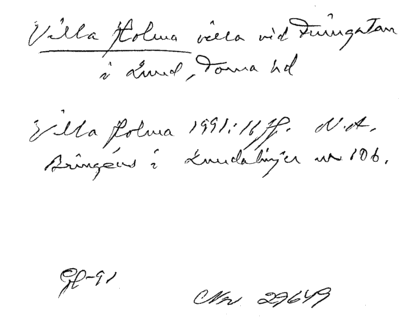 Villa Holma villa vid Tunagatan
i Lund, Torna hd
Villa Holma 1991: 16 ff. N.A.
Bringéus i Lundalinjer nr 106.
GH-91
CNr 29649